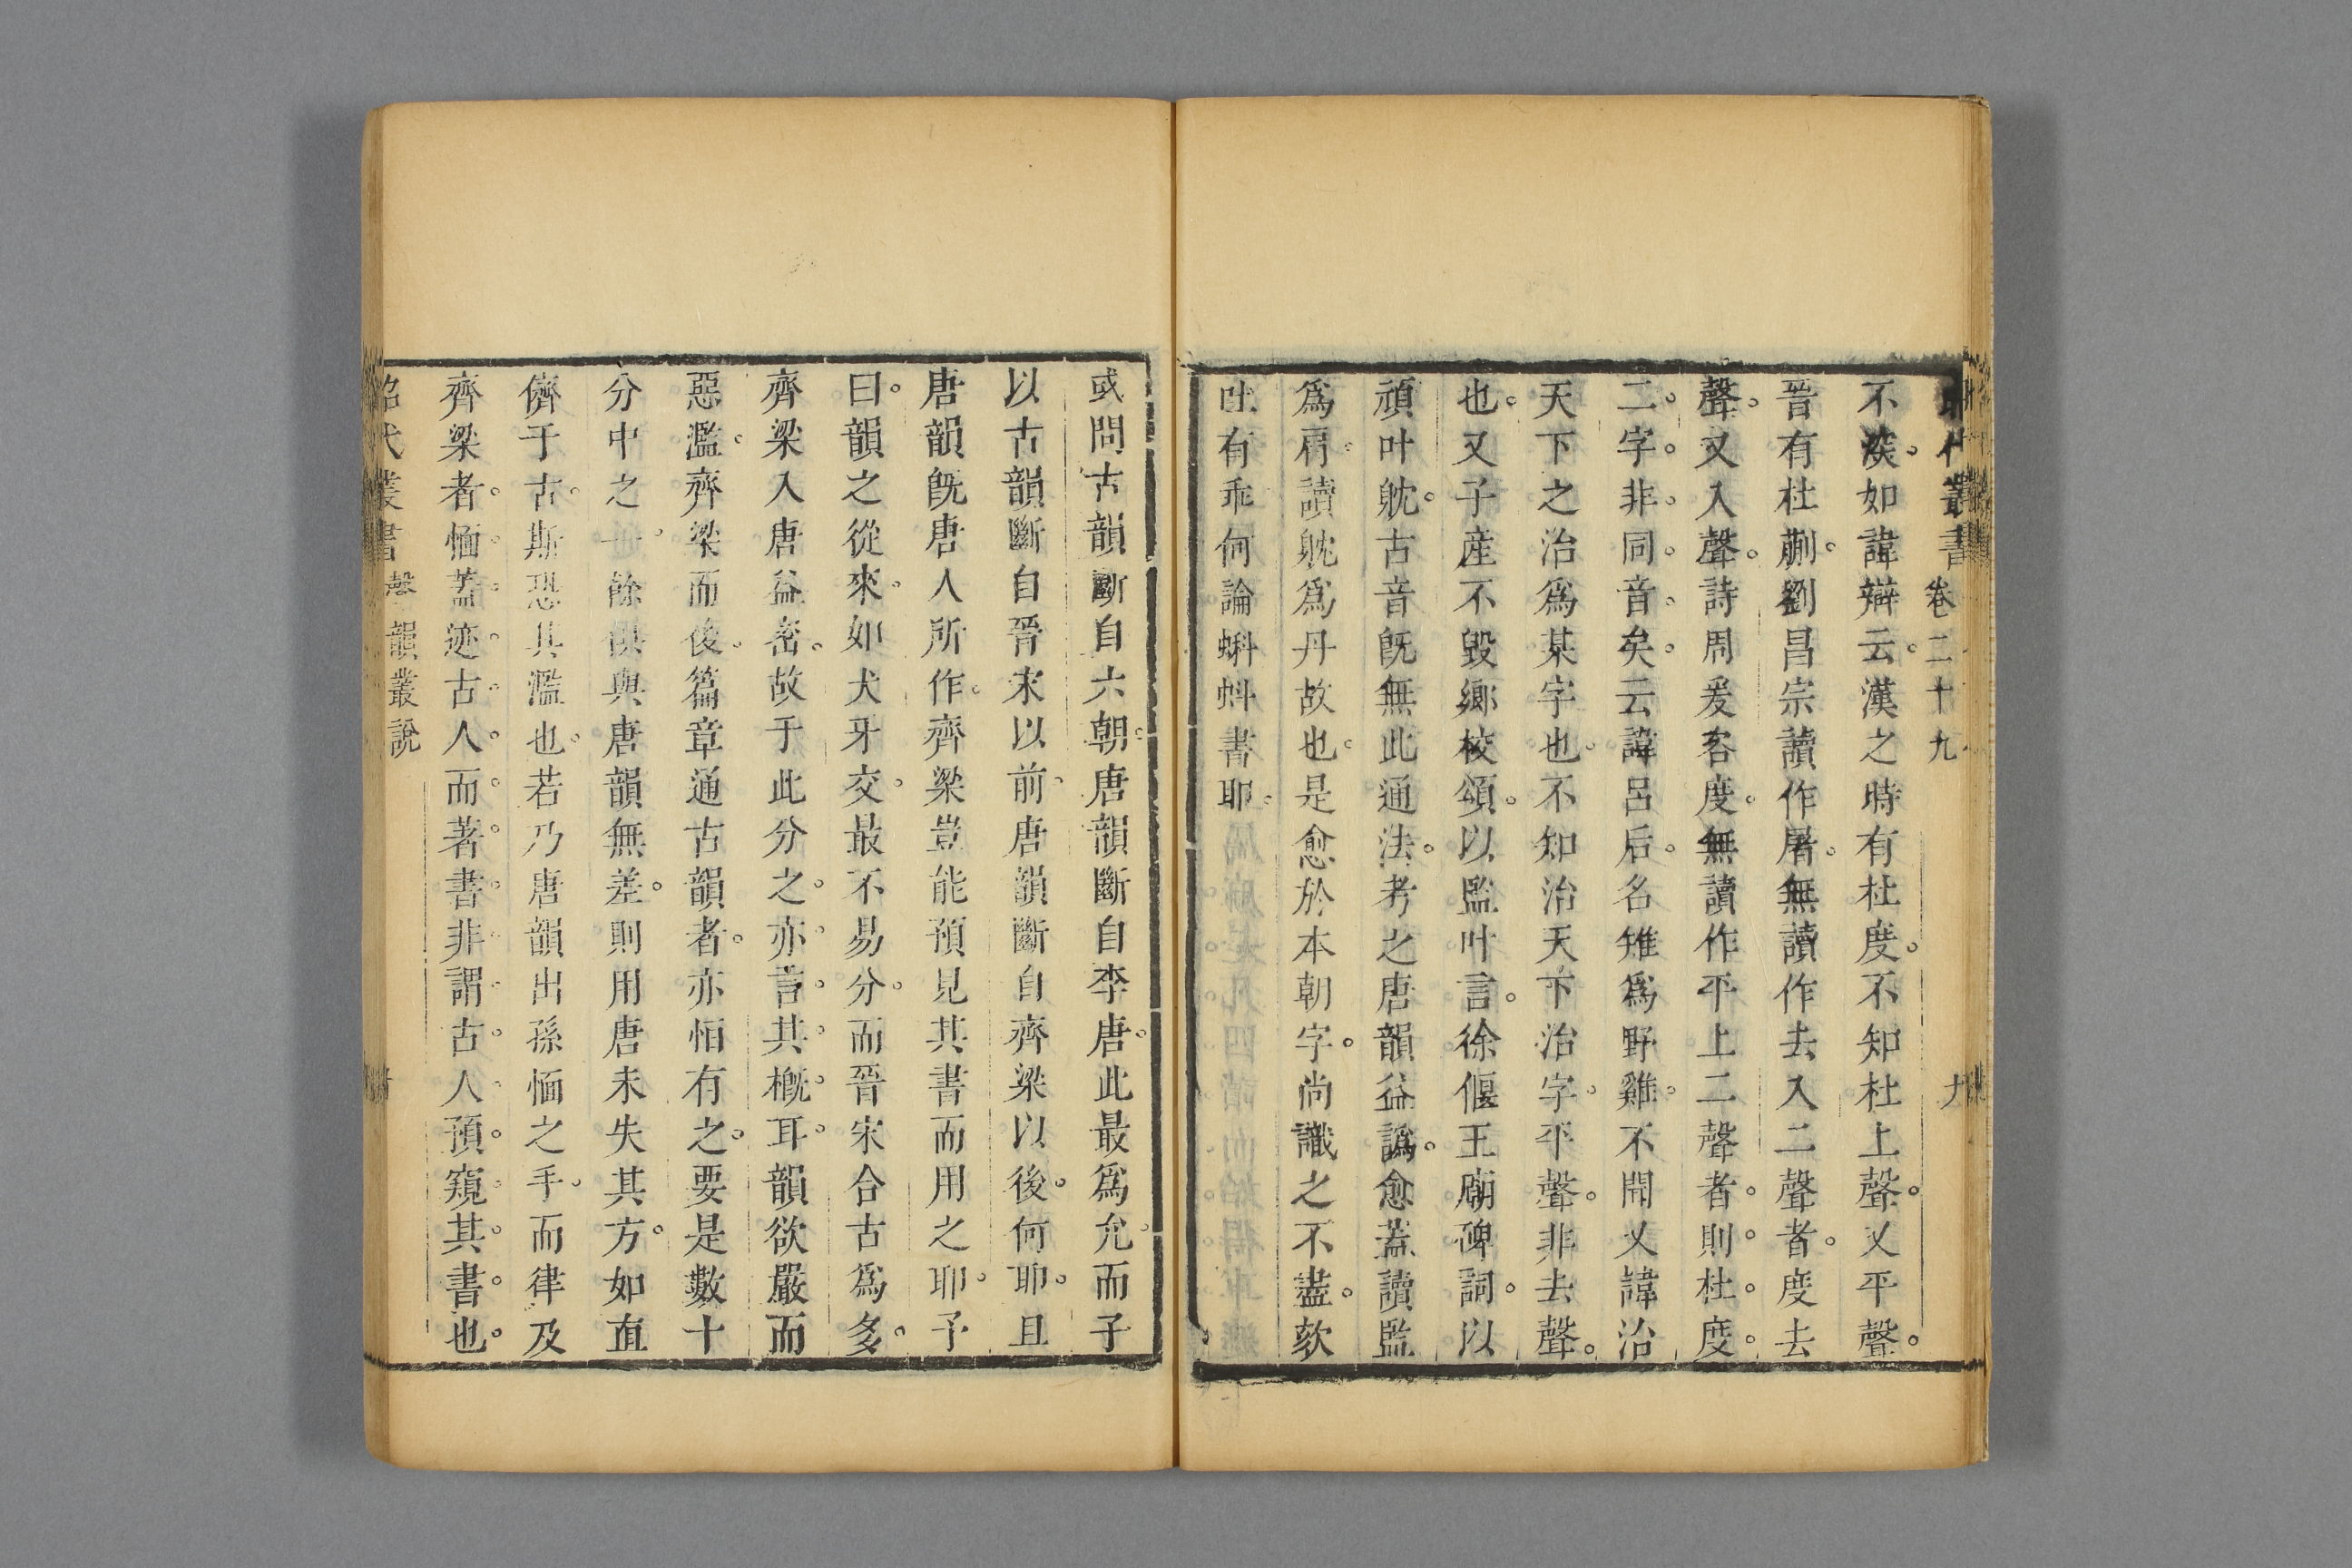 昭代叢書 卷二十九 九
不淡。如諱辯云。漢之時有杜度。不知杜上聲。又平聲。
晉有杜蒯。劉昌宗讀作屠。無讀作去入二聲者。度去
聲。又入聲。詩周爰客度。無讀作平上二聲者。則。杜。度。
二。字。非。同。音。矣。云諱呂后。名雉爲野雞。不聞又諱治
天下之治爲某字也。不知治天下治字。平聲。非去聲。
也。又子產不毀鄉校頌。以監叶言。徐偃王廟碑詞。以
頑叶躭。古音旣無此通法。考之唐韻益譌。愈蓋讀監
爲肩。讀躭爲丹故也。是愈於本朝字。尚識之不盡。欬
吐有乖何論蝌蚪書耶。
或問古韻斷自六朝。唐韻斷自李唐。此最爲允。而子
以古韻斷自晉宋以前。唐韻斷自齊梁以後。何耶。且
唐韻旣唐人所作。齊梁豈能預見其書而用之耶。予
曰。韻之從來。如犬牙交。最不易分。而晉宋合古爲多。
齊梁入唐益密。故于此分之。亦。言。其。槪。耳。韻欲嚴而
惡濫。齊梁而後。篇章通古韻者。亦怕有之。要是數十
分中之一。餘俱與唐韻無差。則用唐未失其方。如直
儕于古。斯恐其濫也。若乃唐韻出孫愐之手。而律及
齊梁者。愐。蓋。迹。古。人。而。著。書。非。謂。古。人。預。窺。其。書。也。
昭代叢書 聲韻叢說